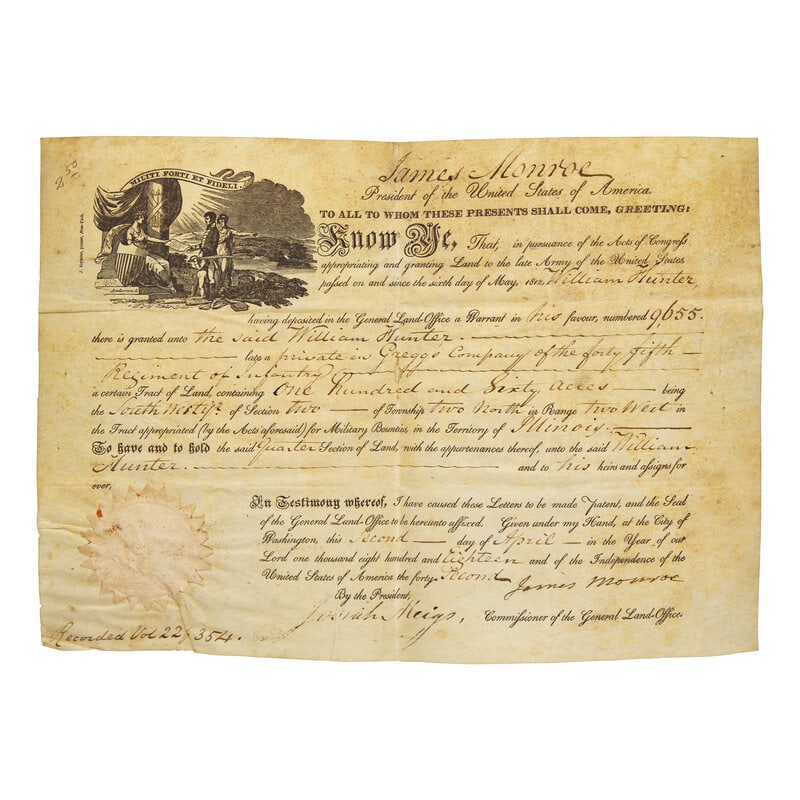 2.50
MILITI FORTI ET FIDELI.
James Monroe
President of the United States of America.
TO ALL TO WHOM THESE PRESENTS SHALL COME, GREETING:
Know Ye, That, in pursuance of the Acts of Congress
appropriating and granting Land to the late Army of the United States
passed on and since the sixth day of May, 1812, William Hunter,
having deposited in the General Land-Office a Warrant in his favour, numbered 9,655.
there is granted unto the said William Hunter.
late a private in Gregg's Company of the forty fifth
Regiment of Infantry
a certain Tract of Land, containing One hundred and Sixty Acres being
the South West qr. of Section two of Township two North in Range two West in
the Tract appropriated (by the Acts aforesaid) for Military Bounties, in the Territory of Illinois.
To have and to hold the said Quarter Section of Land, with the appurtenances thereof, unto the said William
Hunter. and to his heirs and assigns for
ever,
In Testimony whereof, I have caused these Letters to be made Patent, and the Seal
of the General Land-Office to be hereunto affixed. Given under my Hand, at the City of
Washington, this Second day of April in the Year of our
Lord one thousand eight hundred and Eighteen and of the Independence of the
United States of America the forty-Second
James Monroe
By the President,
Josiah Meigs, Commissioner of the General Land-Office.
Recorded Vol 22, 354.